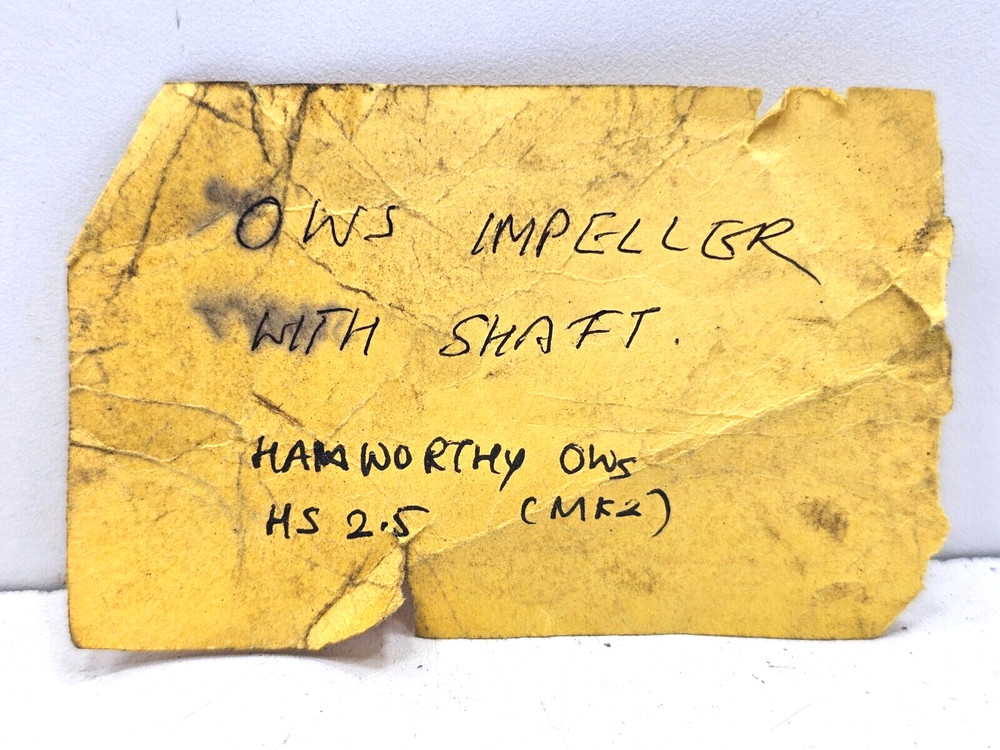 OWS IMPELLER
WITH SHAFT.
HAMWORTHY OWS
HS 2.5 (MK2)